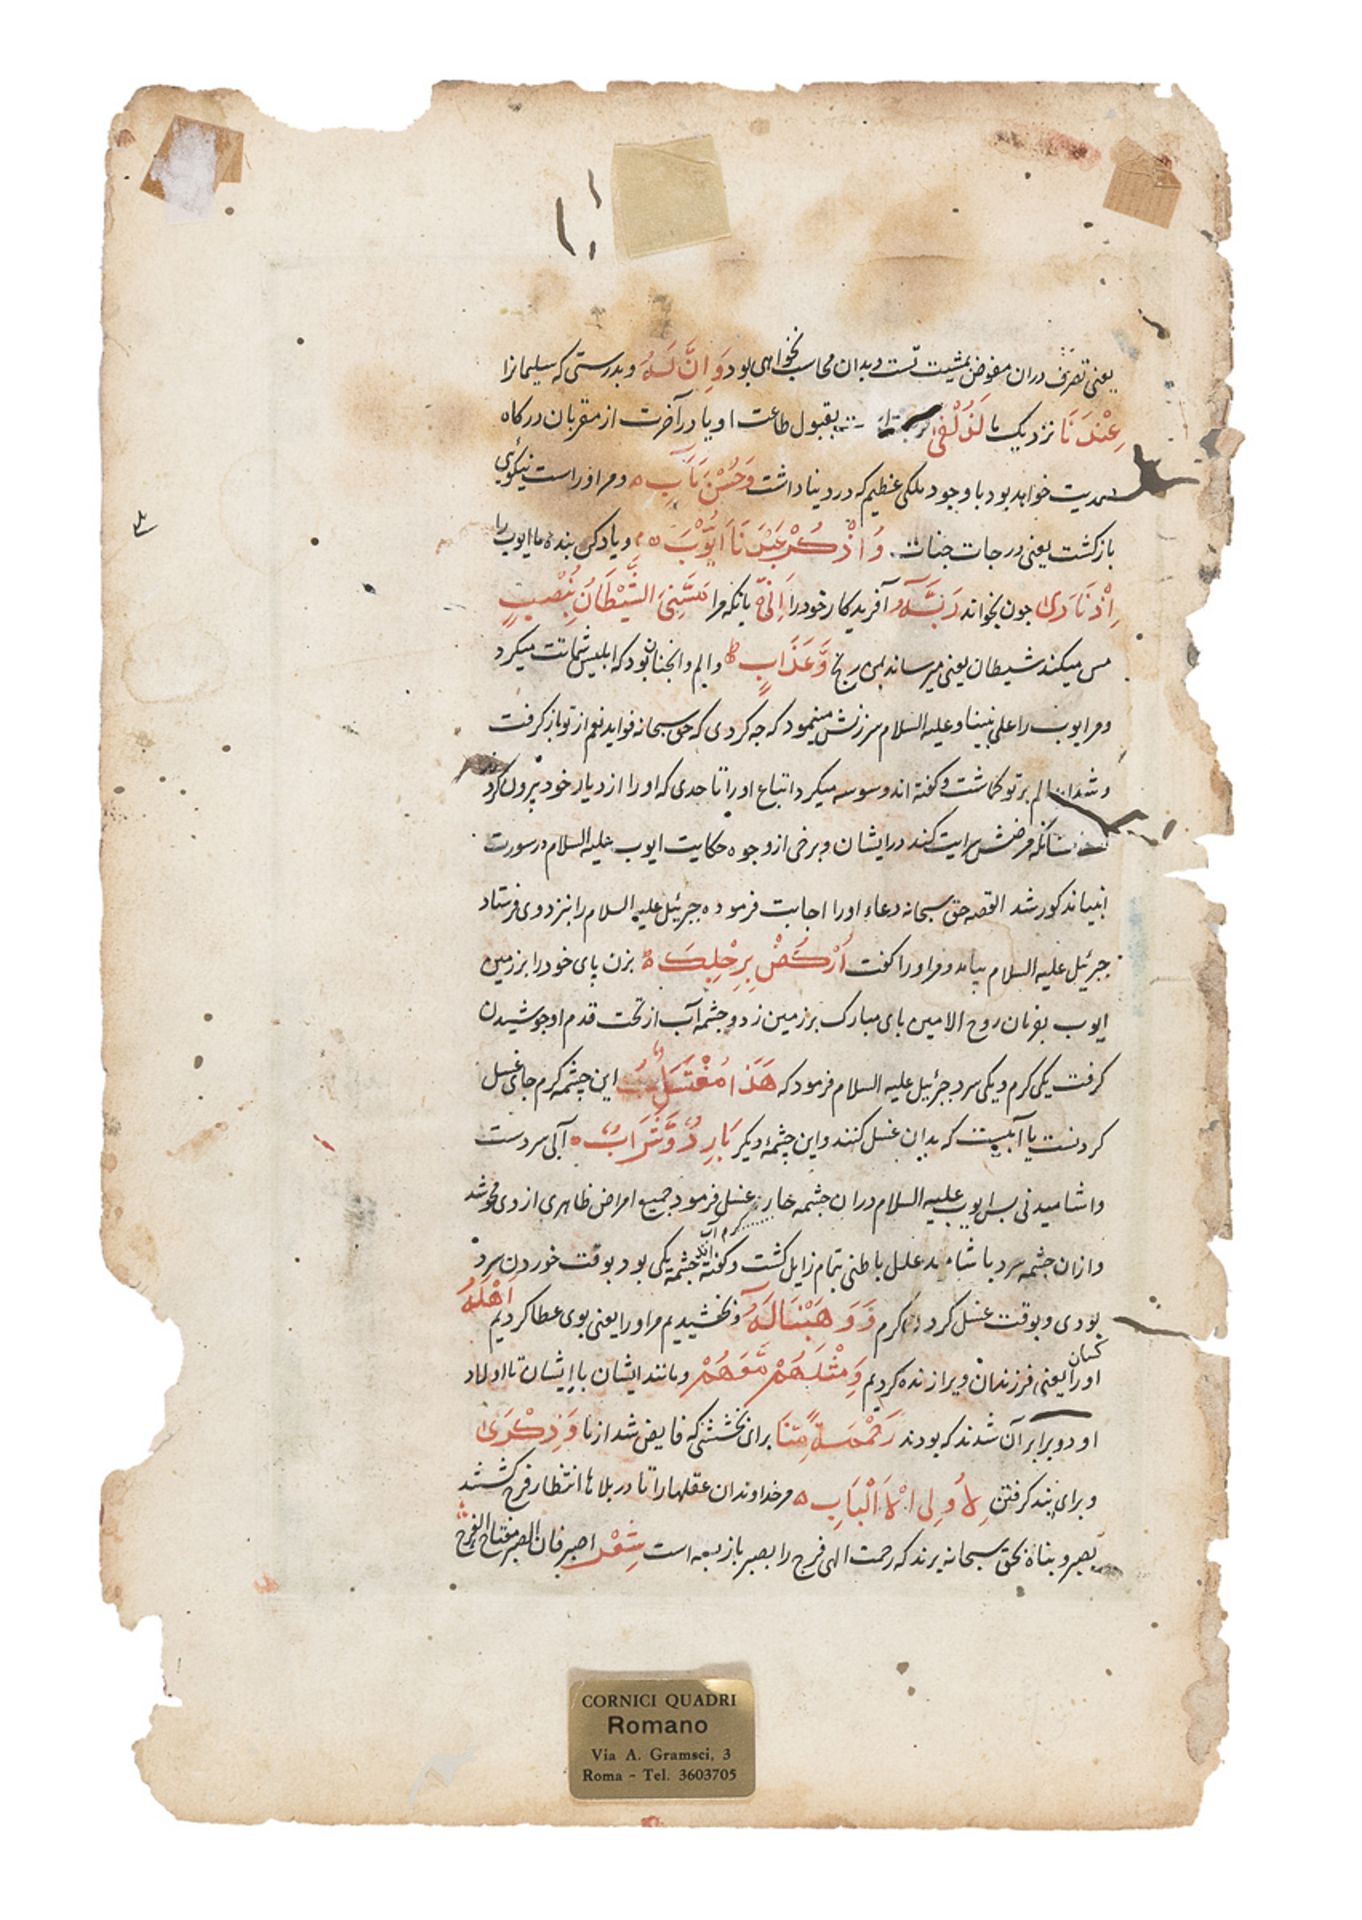 یعنی تصرف دران مفوض بمشیت تست و بدان محاسب نخواهی بود وَاِنَّ لَهُ و بدرستی که سلیمانرا
عِنْدَنَا نزدیک ما لَزُلْفٰی بقبول طاعت او یا در آخرت از مقربان درکاه
خواهد بود با وجود ملکی عظیم که در دنیا داشت وَحُسْنَ مَآبٍ و مر او راست نیکوئی
بازکشت یعنی درجات جنات وَاذْكُرْ عَبْدَنَا اَيُّوبَ و یاد کن بنده ما ایوب را
اِذْ نَادٰى جون بخواند رَبَّهُ آفریدکار خود را اَنِّي بانکه مرا مَسَّنِيَ الشَّيْطَانُ بِنُصْبٍ
مس میکند شیطان یعنی میرساند بمن رنج وَّعَذَابٍ و الم و انجنان بود که ابلیس شماتت میکرد
و مر ایوب را علی نبینا و علیه السلام سرزنش مینمود که جه کردی که حق سبحانه فواید نعم از تو باز کرفت
و شداید الم بر تو کماشت و کفته اند وسوسه میکرد اتباع او را تا حدی که او را از دیار خود بیرون کردند
مرضش سرایت کند در ایشان و برخی از وجوه حکایت ایوب علیه السلام در سورت
انبیا مذکور شد القصه حق سبحانه دعاء او را اجابت فرموده جبرئیل علیه السلام را بنزد وی فرستاد
جبرئیل علیه السلام بیامد و مر او را کفت اُرْكُضْ بِرِجْلِكَ بزن بای خود را بزمین
ایوب بفرمان روح الامین بای مبارک بر زمین زد و جشمه آب از تحت قدم او جوشیدن
کرفت یکی کرم و یکی سرد جبرئیل علیه السلام فرمود که هَذَا مُغْتَسَلٌ این چشمه کرم جای غسل
کردنست یا آبیست که بدان غسل کنند و این چشمهٔ دیکر بَارِدٌ وَّشَرَابٌ آبی سردست
و اشامیدنی بس ایوب علیه السلام دران جشمه حار غسل فرمود جمیع امراض ظاهری از وی محو شد
و ازان جشمه سرد بیاشامید علل باطنی بتمام زایل کشت و کفته اند جشمه یکی بود بوقت خوردن سرد
کرم آب
بودی و بوقت غسل کردن کرم وَوَهَبْنَا لَهُ و بخشیدیم مر او را یعنی بوی عطا کردیم اَهْلَهُ
کسان
او را یعنی فرزندان ویرا زنده کردیم وَمِثْلَهُمْ مَّعَهُمْ و مانند ایشان با ایشان تا اولاد
او دو برابر آن شدند که بودند رَحْمَةً مِّنَّا برای بخششی که فایض شد از ما وَذِكْرٰى
و برای بند کرفتن لِاُولِى الْاَلْبَابِ مر خداوندان عقلها را تا در بلاها انتظار فرج کشند
بصبر و بناه بحق سبحانه برند که رحمت الهی فرج را بصبر باز بسته است شِعْر اصبر فان الصبر مفتاح الفرج
CORNICI QUADRI
Romano
Via A. Gramsci, 3
Roma - Tel. 3603705